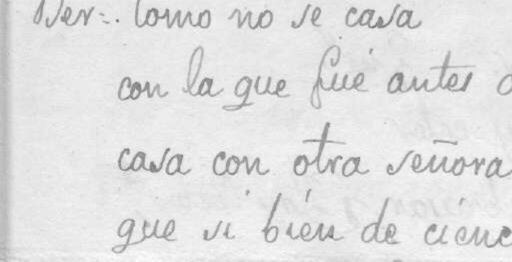 Ber=. Como no se casa
con la que fué antes
casa con otra señora
que si bien de cienc